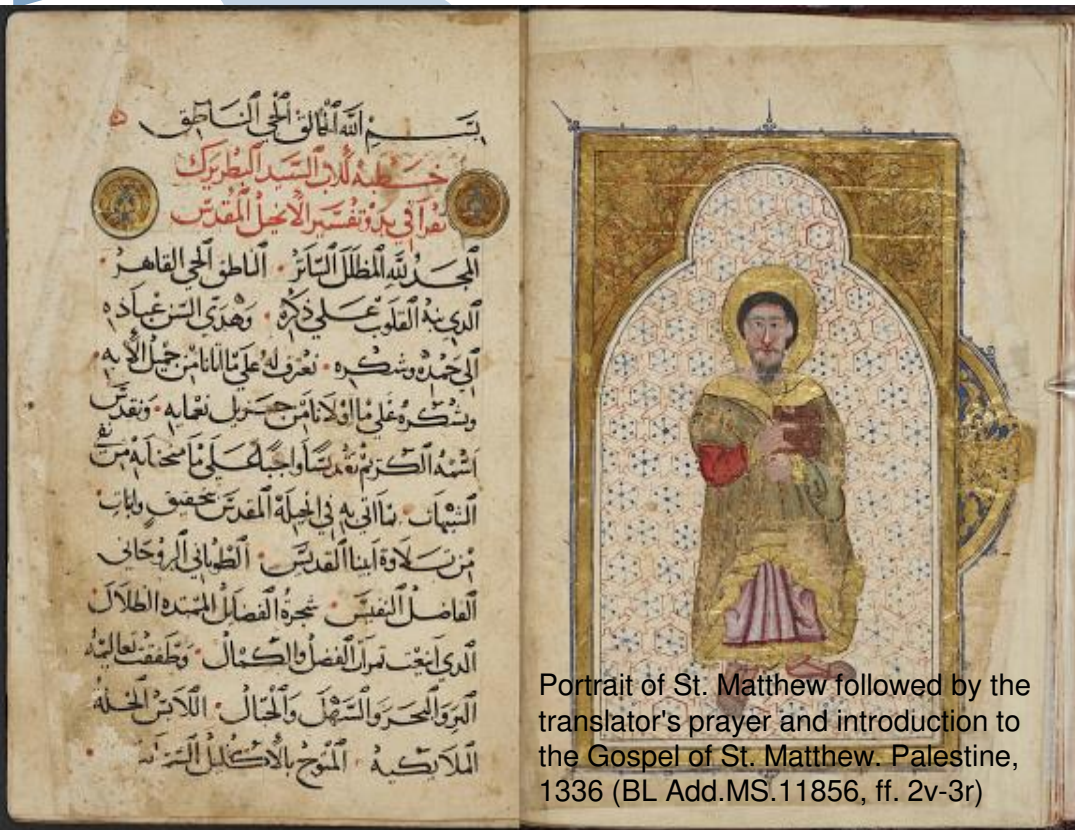 بسم الله الخالق الحي الناطق
خطبة للاب السيد البطريرك
تقرا في بدو تفسير الانجيل المقدس
المجد لله المظلل الساتر • الناطق الحي القاهر •
الدي نبه القلوب على ذكره • وهدى السن عباده
الي حمده وشكره • نعترف له على ما انالنا من جميل الايه •
ونشكره على ما اولانا من جزيل نعمايه • ونقدس
اسمه الكريم تقديسا واجبا على ما من
الشبهات • بما اتي به في انجيله المقدس تحقيق
من تلاوة ابينا القديس • الطوباني الروحاني
الفاضل النفيس • شجرة الفضايل الممتده الظلال
الدي اينعت تمرات الفضل والكمال • وطفقت تعاليمه
البر والبحر والسهل والجبال • اللابس الحلة
الملايكيه • المتوج بالاكليل
Portrait of St. Matthew followed by the
translator's prayer and introduction to
the Gospel of St. Matthew. Palestine,
1336 (BL Add.MS.11856, ff. 2v-3r)